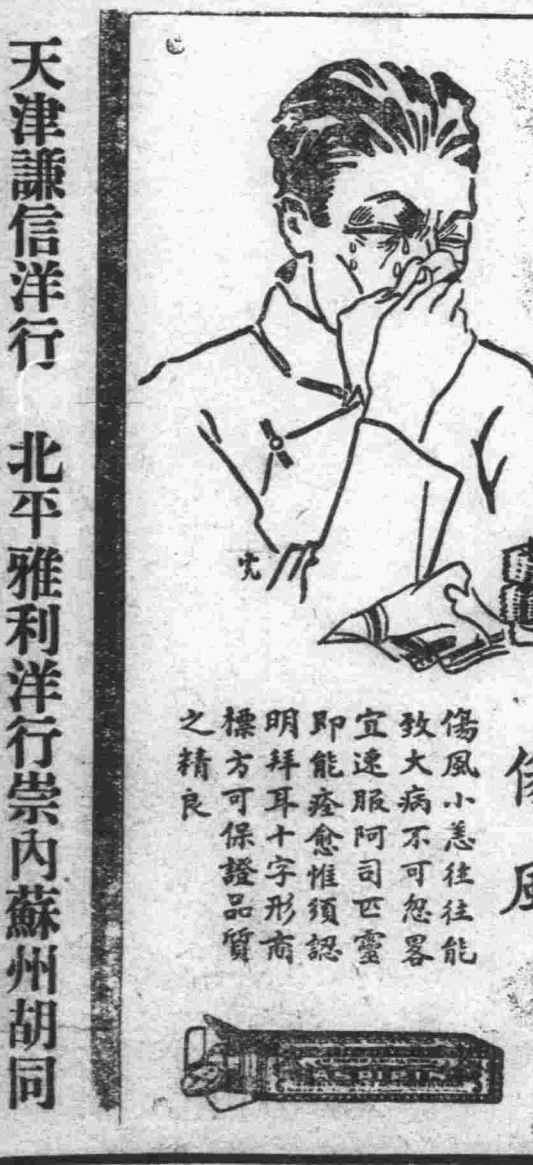 傷風
傷風小恙往往能
致大病不可忽畧
宜速服阿司匹靈
即能痊愈惟須認
明拜耳十字形商
標方可保證品質
之精良
ASPIRIN
天津謙信洋行 北平雅利洋行崇內蘇州胡同